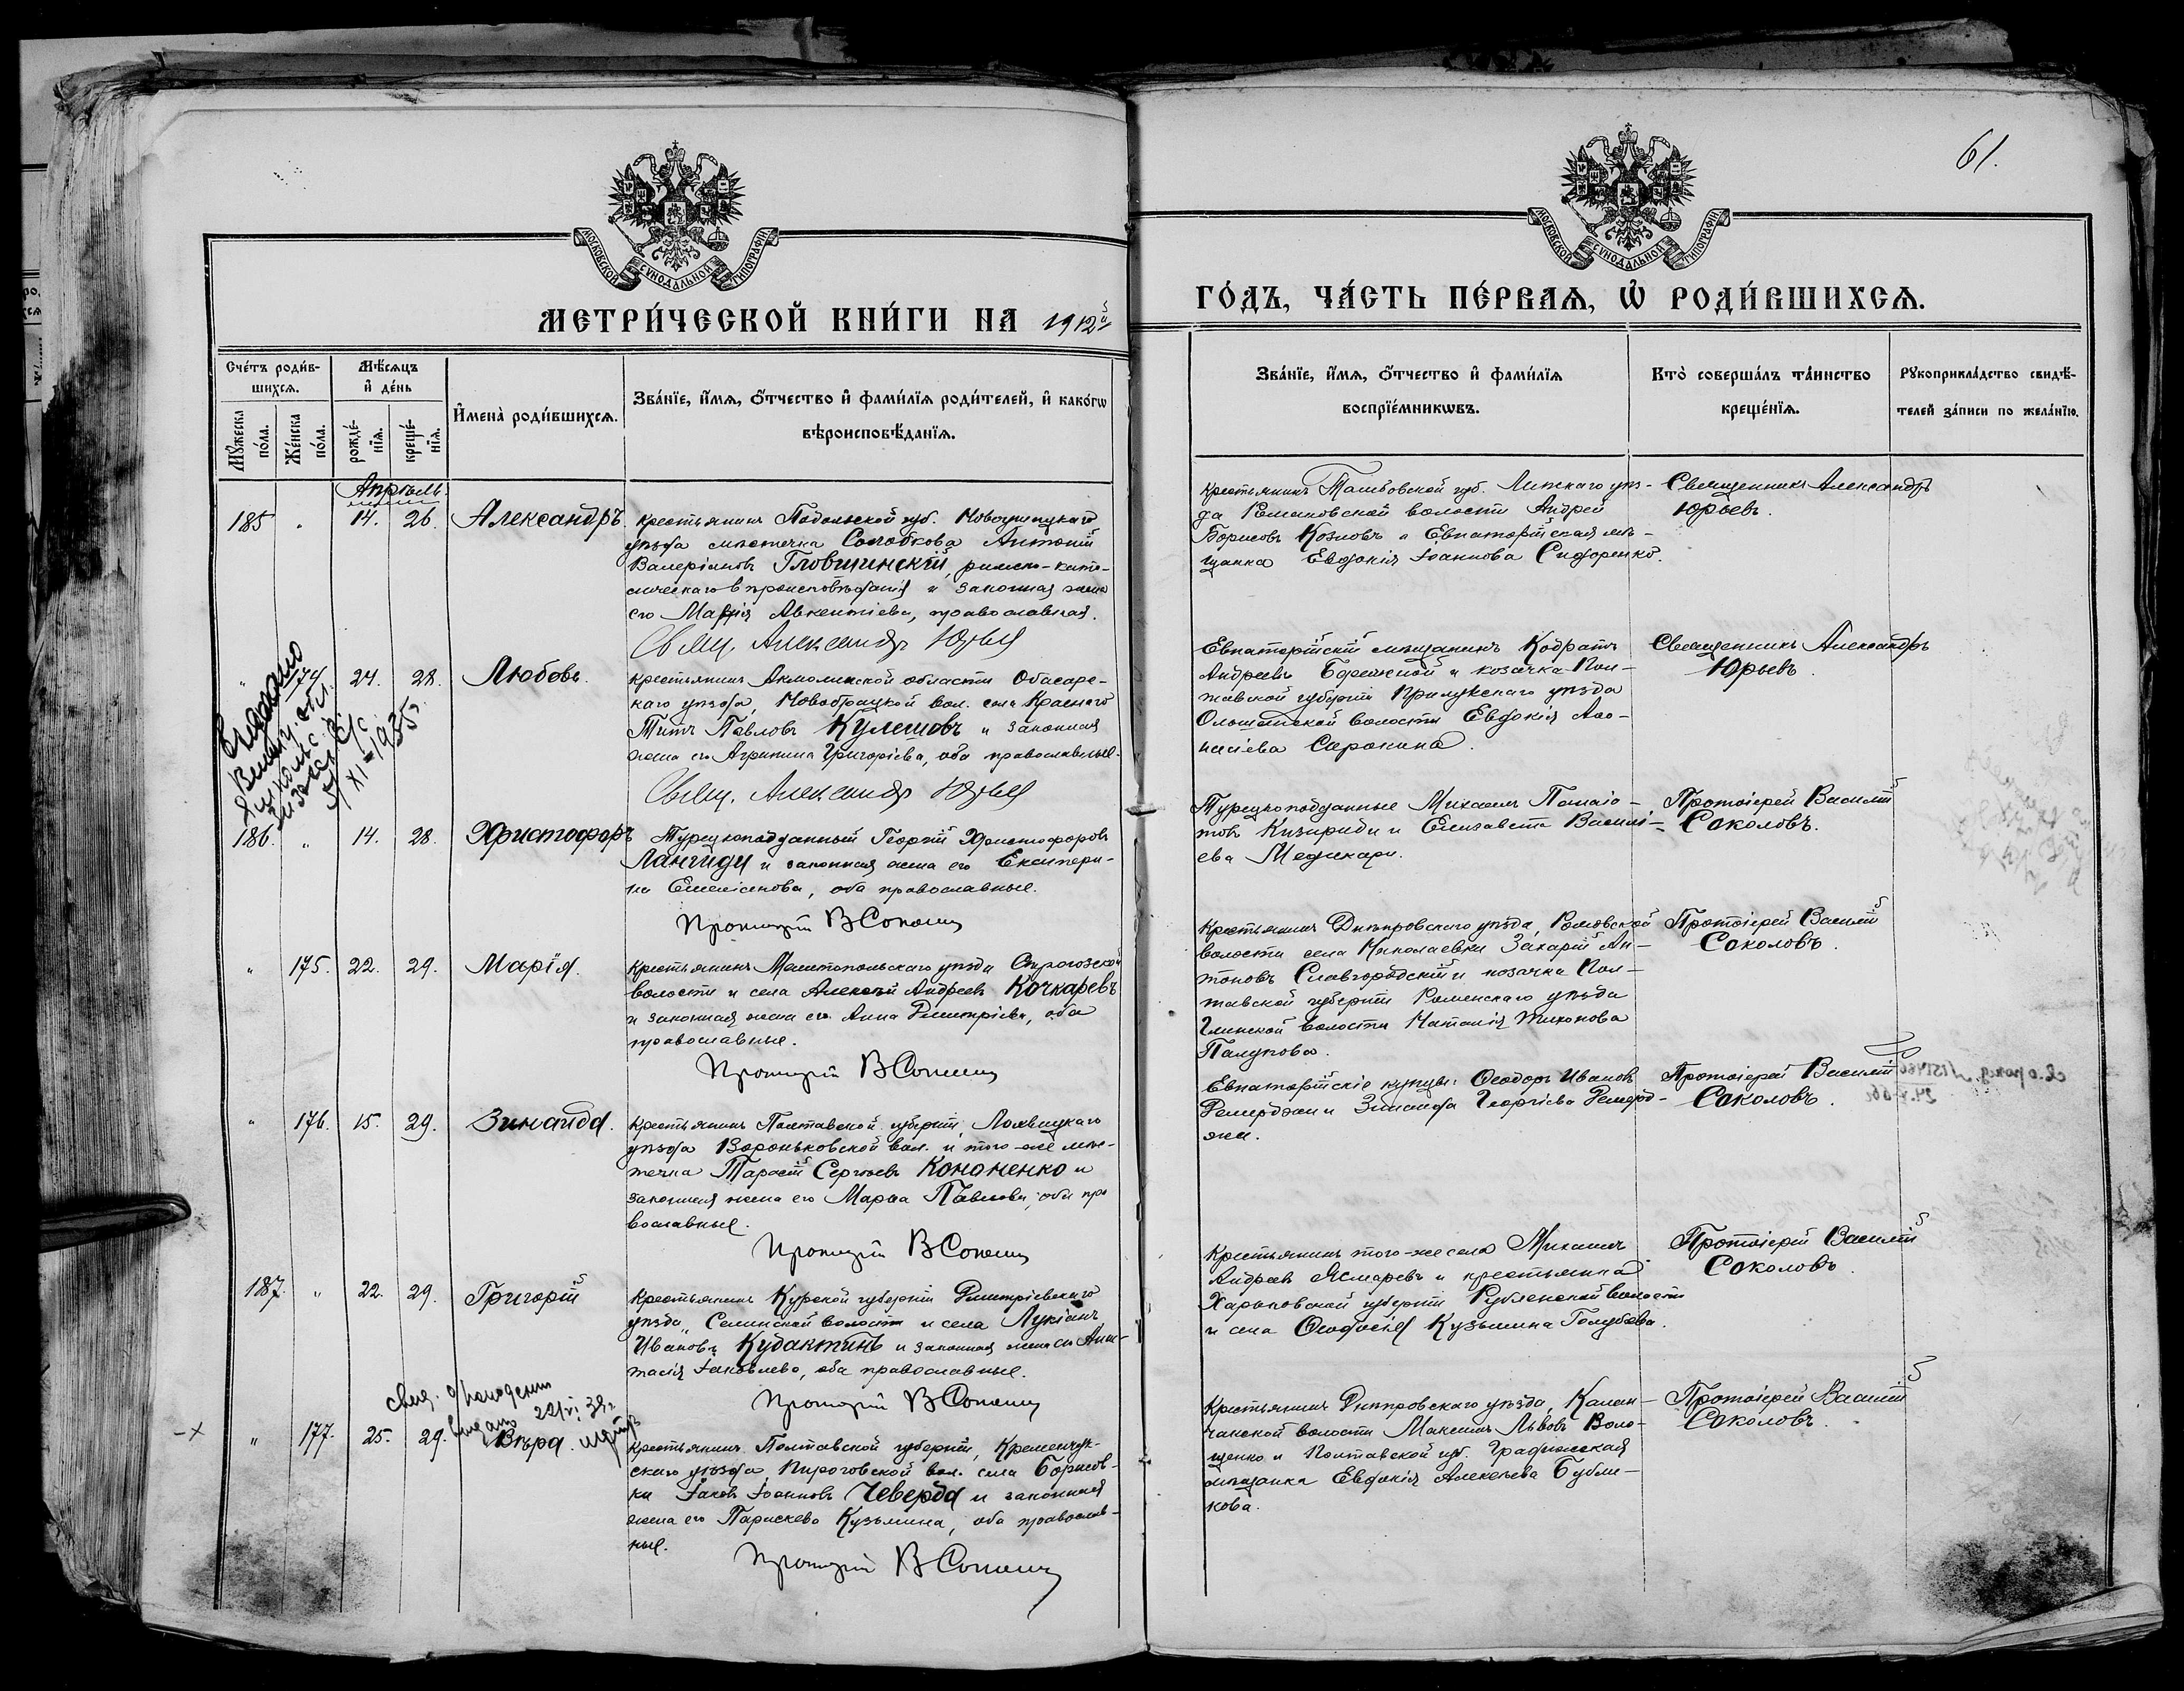 61.
МОСКОВСКОЙ СѴНОДАЛЬНОЙ ТИПОГРАФИИ
МОСКОВСКОЙ СѴНОДАЛЬНОЙ ТИПОГРАФИИ
МЕТРИ́ЧЕСКОЙ КНИ́ГИ НА 1912й
ГО́ДЪ, ЧА́СТЬ ПЕ́РВАѦ, Ѡ҆ РОДИ́ВШИХСѦ.
Сче́тъ роди́в-
шихсѧ.
Мꙋ́жеска по́ла.
Же́нска по́ла.
Мѣ́сѧцъ
и҆ де́нь
рожде́-
нїѧ.
креще́-
нїѧ.
И҆мена̀ роди́вшихсѧ.
Зва́нїе, и҆́мѧ, ѻ҆́тчество и҆ фами́лїѧ роди́телей, и҆ како́гѡ
вѣроисповѣ́данїѧ.
Зва́нїе, и҆́мѧ, ѻ҆́тчество и҆ фами́лїѧ
воспрїе́мникѡвъ.
Кто̀ соверша́лъ та́инство
креще́нїѧ.
Рꙋкоприкла́дство свидѣ́-
телей за́писи по жела́нїю.
Апрѣль.
185 " 14. 26. Александръ.
Крестьянинъ Подольской губ. Новоушицкаго
уѣзда мѣстечка Солобкова Антоній
Валеріановъ Гловшинскій, римско-като-
лическаго вѣроисповѣданія и законная жена
его Марія Авкентіева, православная.
Свящ. Александръ Юрьев
Крестьянинъ Тамбовской губ. Липкаго уѣз-
да Романовской волости Андрей
Борисовъ Козловъ и Евпаторійская мѣ-
щанка Евдокія Іоаннова Сидоренко.
Священникъ Александръ
Юрьевъ.
" 174 24. 28. Любовь.
Крестьянинъ Акмолинской области
каго уѣзда, Новобрацкой вол. села Краснаго
Титъ Павловъ Кулешовъ и законная
жена его Агрипина Григоріева, оба православные.
Свящ. Александръ Юрьев
Евпаторійскій мѣщанинъ Кодратъ
Андреевъ Бережной и козачка Пол-
тавской губерніи Прилукскаго уѣзда
Ольшанской волости Евдокія Аѳа-
насіева Сорокина.
Священникъ Александръ
Юрьевъ.
5/XI-1935г
186. " 14. 28. Христофоръ
Турецкоподданный Георгій Христофоровъ
Лангиди и законная жена его Екатери-
на Емеліанова, оба православные.
Протоіерей В Соколовъ
Турецкоподданные Михаилъ Панаіо-
товъ Кизириди и Елизавета Василі-
ева Меджкари.
Протоіерей Василій
Соколовъ.
" 175. 22. 29. Марія.
Крестьянинъ Мелитопольскаго уѣзда Сирогозской
волости и села Алексѣй Андреевъ Кочкаревъ
и законная жена его Анна Димитріева, оба
православные.
Протоіерей В Соколовъ
Крестьянинъ Днѣпровскаго уѣзда,
волости села Николаевки Захарій Ан-
тоновъ Славгородскій и козачка Пол-
тавской губерніи Роменскаго уѣзда
Глинской волости Наталія Тихонова
Палунова.
Протоіерей Василій
Соколовъ.
" 176. 15. 29. Зинаида.
Крестьянинъ Полтавской губерніи, Лохвицкаго
уѣзда Вороньковской вол. и того-же мѣс-
течка Тарасій Сергѣевъ Кононенко и
законная жена его Марѳа Павлова, оба пра
вославные.
Протоіерей В Соколовъ
Евпаторійскіе купцы: Ѳеодоръ Ивановъ
Демерджи и Зинаида Георгіева Демерд-
жи.
Протоіерей Василій
Соколовъ.
187. " 22. 29. Григорій
Крестьянинъ Курской губерніи Димитріевскаго
уѣзда, Селинской волости и села Лукіанъ
Ивановъ Кудактинъ и законная жена его Анас-
тасія Іаковлева, оба православные.
Протоіерей В Соколовъ
Крестьянинъ того-же села Михаилъ
Андреевъ Ясмаревъ и крестьянка
Харьковской губерніи Рублевской волости
и села Ѳеодосія Кузьмина Голубова.
Протоіерей Василій
Соколовъ.
свид. о рождении
выдано
" 177. 25. 29. Вѣра.
Крестьянинъ Полтавской губерніи, Кременчуг-
скаго уѣзда, Пироговской вол. села Борисов-
ки Іаковъ Іоанновъ Чеверда и законная
жена его Параскева Кузьмина, оба православ-
ные.
Протоіерей В Соколовъ
Крестьянинъ Днѣпровскаго уѣзда, Калан-
чакской волости Максимъ Львовъ Воло-
щенко и Полтавской губ. Градижская
мѣщанка Евдокія Алексѣева Бубли-
кова.
Протоіерей Василій
Соколовъ.